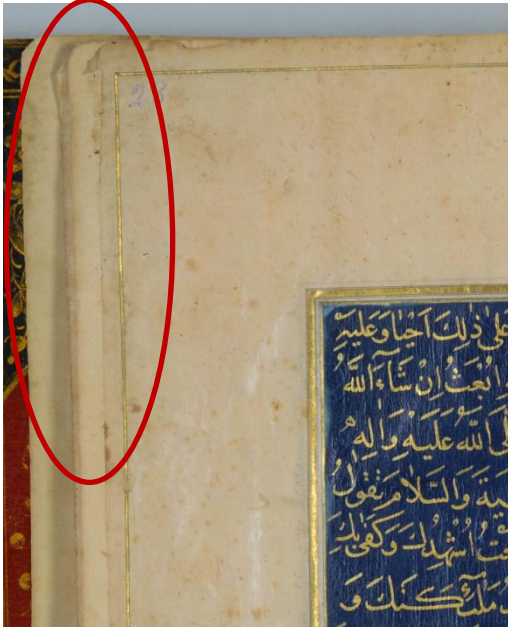 عَلىٰ ذٰلِكَ اَحْيَا وَعَلَيْهِ
وَاُبْعَثُ اِنْ شَآءَ اللّٰهُ
اللّٰهُ عَلَيْهِ وَاٰلِهِ
وَالسَّلَامَ نَقُولُ
اُشْهِدُكَ وَكَفىٰ بِكَ
مَلٰٓئِكَتَكَ وَ